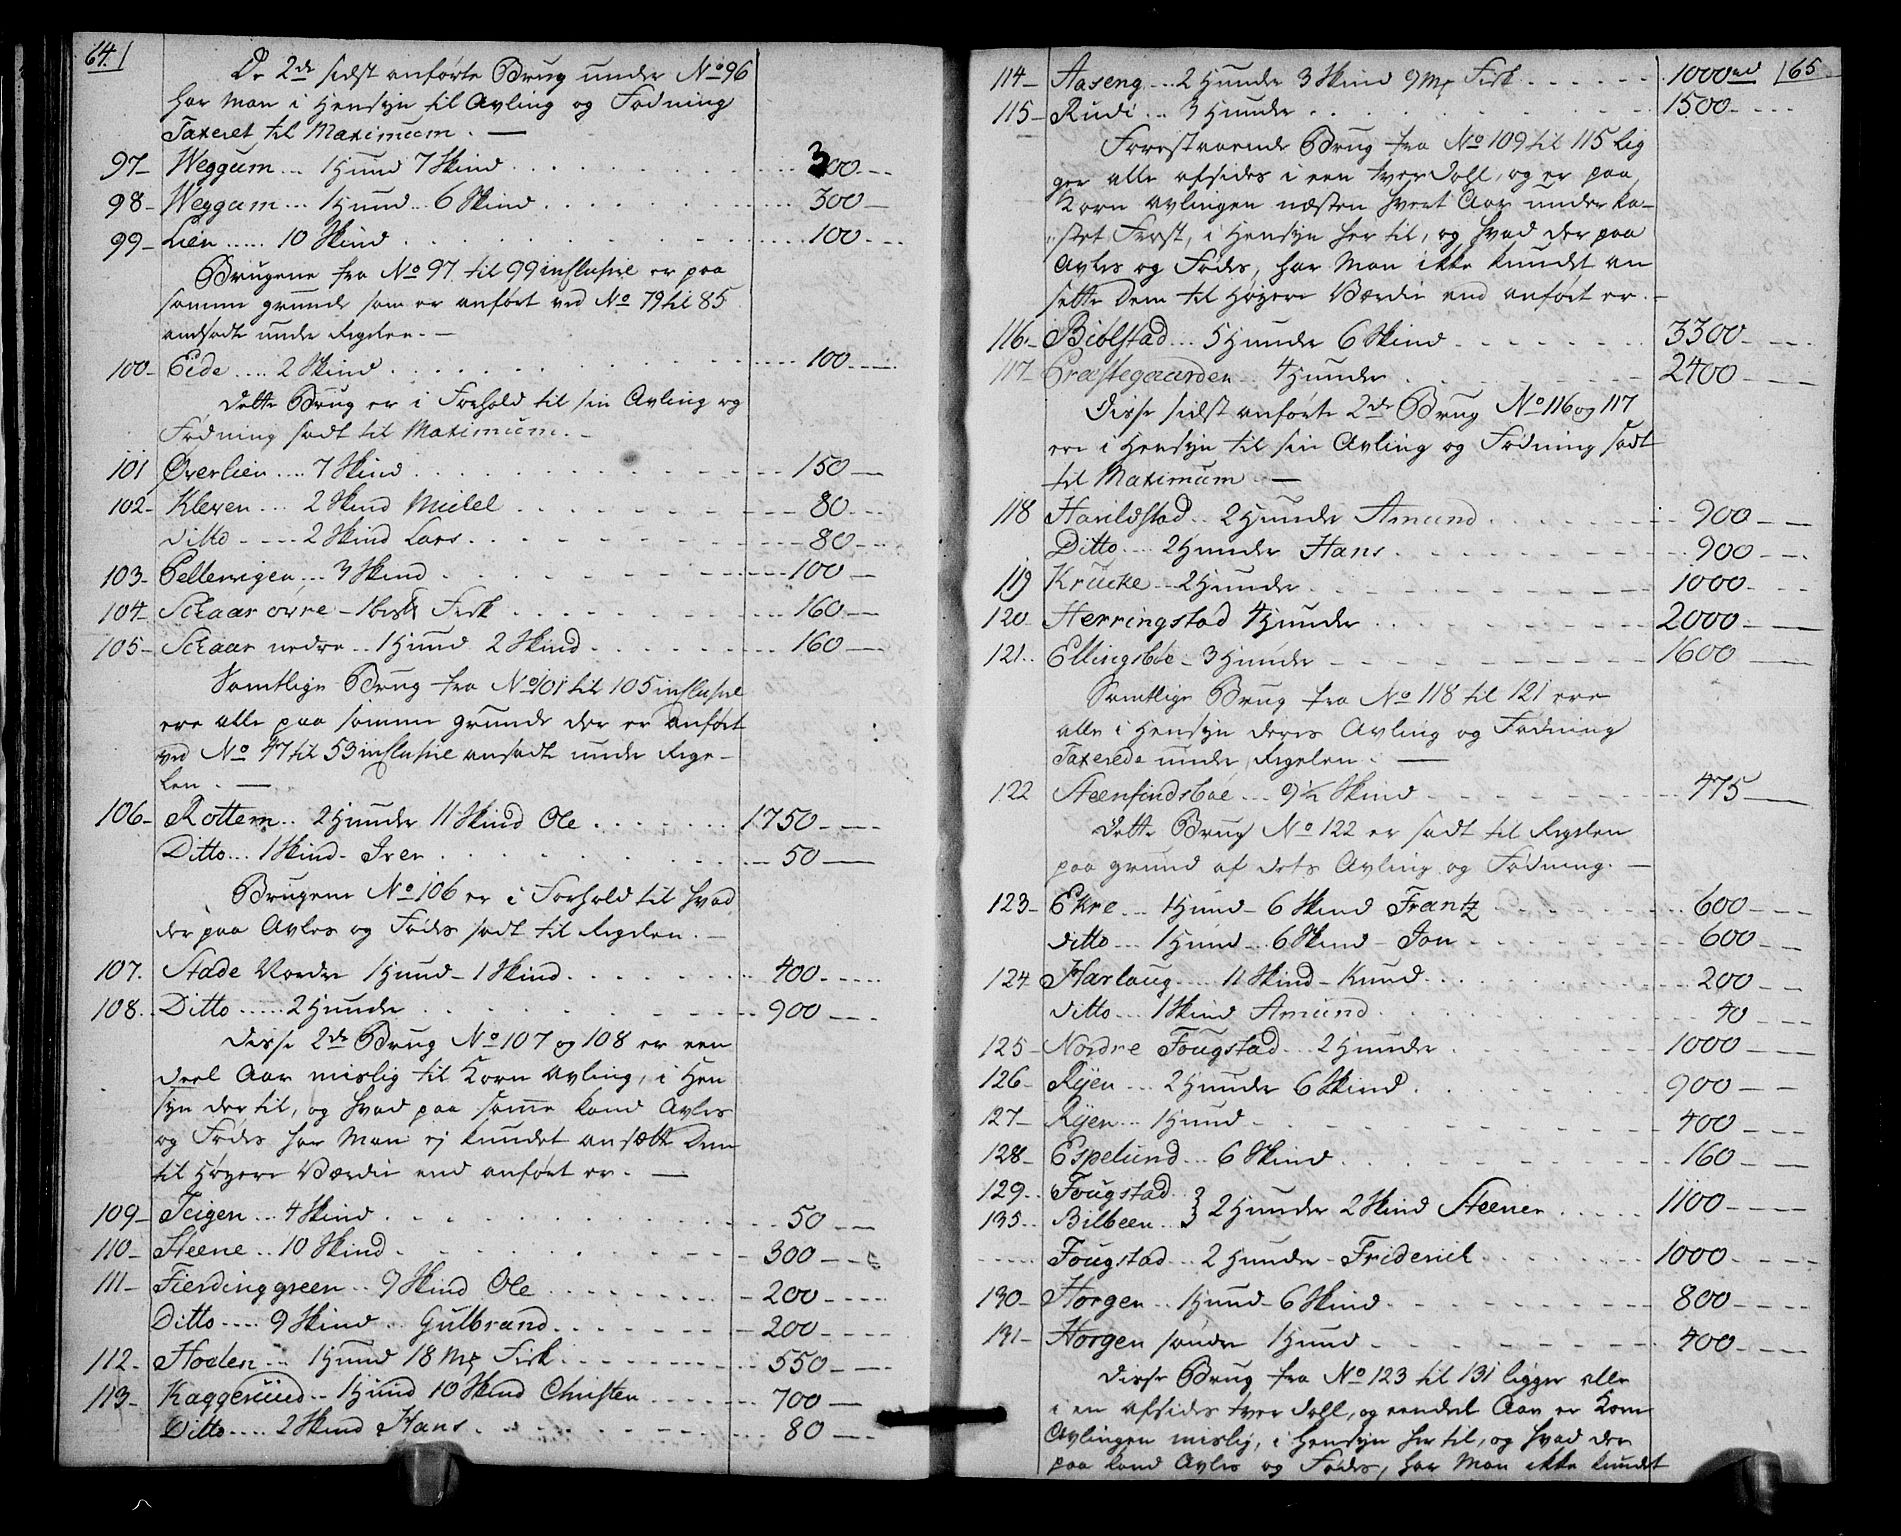 64.
De 2de sidst anførte Brug under No 96
har Man i Hensyn til Avling og Fødning
Taxeret til Maximum. —
97 – Weggum ... 1 Hund 7 Skind . . . 300 - - -
98 – Weggum ... 1 Hund .. 6 Skind . . . 300 —
99 – Lien ..... 10 Skind . . . 100 - - -
Brugene fra No 97 til 99 inclusive er paa
samme grunde som er anført ved No 79 til 85
andsadt under Regelen. —
100 – Eide .... 2 Skind . . . 100 - - -
Dette Brug er i Forhold til sin Avling og
Fødning sadt til Maximum. –
101 Øverlien .... 7 Skind . . . 150 —
102 – Kleven ... 2 Skind Mickel . . . 80 - - -
Ditto - - - - 2 Skind Lars . . . 80 - - -
103 – Pellervigen ... 3 Skind . . . 100 —
104 – Schaar øvre – 1 bisk Fisk . . . 160 — —
105 – Schaar nedre .. 1 Hund 2 Skind . . . 160 —
Samtlige Brug fra No 101 til 105 inclusive
ere alle paa samme grunde der er anført
ved No 47 til 53 inclusive ansadt under Rege-
len. —
106 – Rottem .. 2 Hunder 11 Skind Ole . . . 1750 - - -
Ditto ... 1 Skind – Iver . . . 50 —
Brugene No 106 er i Forhold til hvad
der paa Avles og Fødes sadt til Regelen. —
107. Stade Nordre 1 Hund – 1 Skind . . . 400 - - - -
108. Ditto ..... 2 Hunder . . . 900 - - -
Disse 2de Brug No 107 og 108 er een
deel Aar mislig til Korn Avling, i Hen
syn der til, og hvad paa samme kand Avles
og Fødes har Man ej kundet ansætte Dem
til Høyere Værdie end anført er. —
109 – Teigen ... 4 Skind . . . 50 - - -
110 – Steene .. 10 Skind . . . 300 - - -
111 – Fierdinggreen .. 9 Skind Ole . . . 200 - - - -
Ditto .... 9 Skind .. Gulbrand . . . 200 - - - -
112. Floden ... 1 Hund 18 Mk Fisk . . . 550 - - -
113 – Kaggeruud .. 1 Hund 10 Skind Christen . . . 700 —
Ditto .... 2 Skind Hans . . . 80 - - -
65
114 – Aaseng ... 2 Hunder 3 Skind 9 Mk Fisk . . . 1000 rd
115 – Rudi ... 3 Hunder . . . 1500 - - -
Forestaaende Brug fra No 109 til 115 lig
ger alle afsides i een tver Dahl, og er paa
Korn avlingen næsten hvert Aar underka-
stet Frost, i Hensyn her til, og hvad der paa
Avles og Fødes, har Man ikke kundet an
sette Dem til Høyere Værdie end anført er. –
116 – Biølstad ... 5 Hunder 6 Skind . . . 3300 - - - -
117 – Præstegaarden .. 4 Hunder . . . 2400 - - -
Disse sidst anførte 2de Brug No 116 og 117
ere i Hensyn til sin Avling og Fødning sadt
til Maximum —
118 Harildstad .. 2 Hunder Amund . . . 900 - - -
Ditto .... 2 Hunder Hans . . . 900 - - -
119 Krucke ... 2 Hunder . . . 1000 - - -
120 Herringstad 4 Hunder . . . 2000 - - -
121 .. Ellingsbøe – 3 Hunder . . . 1600 — —
Samtlige Brug fra No 118 til 121 ere
alle i Hensyn deres Avling og Fødning
Taxerede under Regelen. —
122 Steenfindsbøe ... 9 1/2 Skind . . . 475 —
Dette Brug No 122 er sadt til Regelen
paa grund af dets Avling og Fødning. —
123 – Ekre ... 1 Hund – 6 Skind Frantz . . . 600 - - -
Ditto ... 1 Hund ... 6 Skind – Jon . . . 600 - - -
124 Harlaug .... 11 Skind – Knud . . . 200 - - -
Ditto ... 1 Skind Amund . . . 40 - - -
125 – Nordre Fougstad ... 2 Hunder . . . 1000 - - -
126 – Ryen ... 2 Hunder 6 Skind . . . 900 - - -
127 – Ryen ... 1 Hund . . . 400 - - -
128 – Espelund ... 6 Skind . . . 160 - - -
129 .. Fougstad ..
135 .. Bilbeen .. } 2 Hunder 2 Skind Steener . . . 1100 - - -
..... Fougstad ... 2 Hunder – Friderich . . . 1000 - - - -
130 – Horgen .. 1 Hund – 6 Skind . . . 800 - - - -
131 – Horgen søndre 1 Hund . . . 400 - - - -
Disse Brug fra No 123 til 131 ligger alle
i en afsides tver Dahl, og eendeel Aar er Korn
Avlingen mislig, i Hensyn her til, og hvad der
paa kand Avles og Fødes, har Man ikke kundet